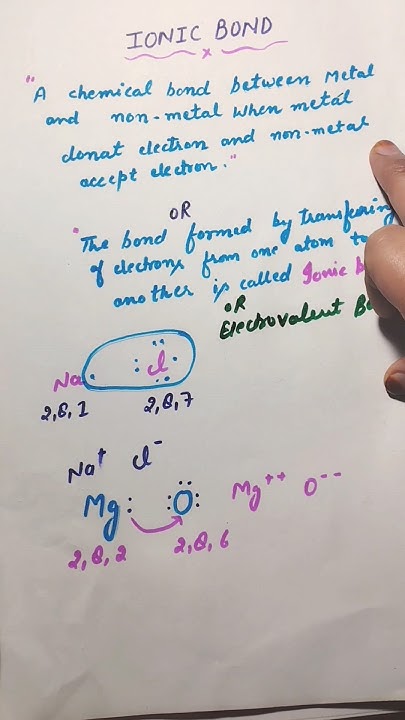 IONIC BOND
"A chemical bond between Metal
and non-metal when metal
donat electron and non-metal
accept electron."
OR
"The bond formed by transfering
of electrons from one atom to
another is called Ionic b
OR
Electrovalent B
Na Cl
2,8,1 2,8,7
Na⁺ Cl⁻
Mg: :O: Mg⁺⁺ O⁻⁻
2,8,2 2,8,6